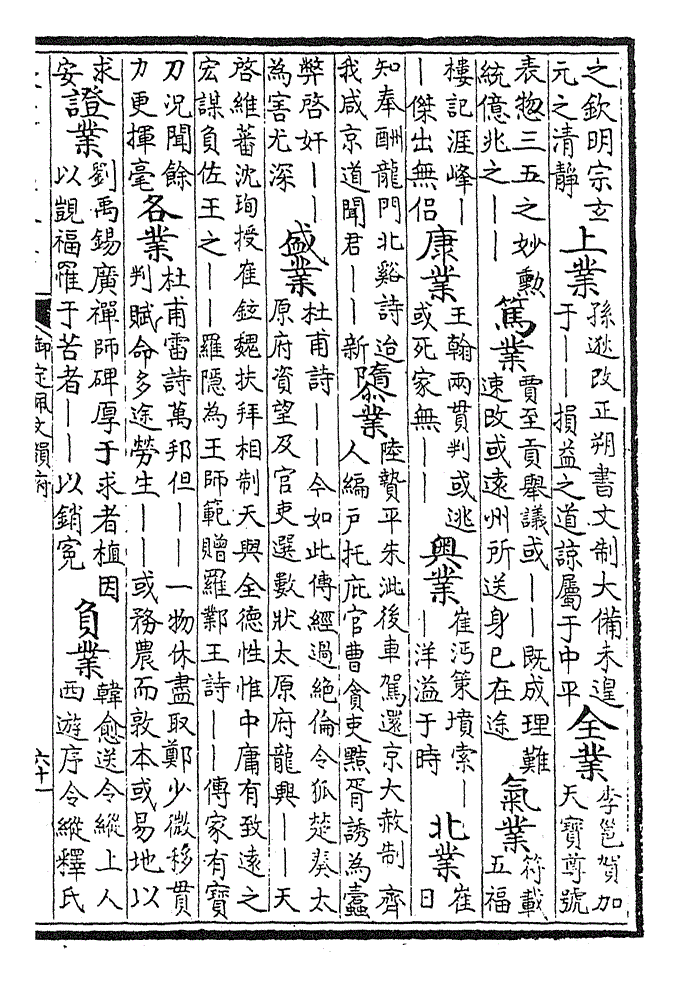 之欽明宗玄
元之清靜
上業
孫逖改正朔書文制大備未遑
于——損益之道諒屬于中平
全業
李邕賀加
天寶尊號
表惣三五之妙勲
統億兆之——
篤業
賈至貢舉議或——既成理難
速改或遠州所送身已在途
氣業
符載
五福
樓記涯峰—
—傑出無侶
康業
王翰兩貫判或逃
或死家無——
奧業
崔沔策墳索—
—洋溢于時
北業
崔
日
知奉酬龍門北谿詩迨
我咸京道聞君——新
隳業
陸贄平朱泚後車駕還京大赦制齊
人編戶托庇官曹貪吏黠胥誘為蠹
弊啓奸——
為害尤深
盛業
杜甫詩——今如此傳經過絶倫令狐楚奏太
原府資望及官吏選數狀太原府龍興——天
啓維蕃沈珣授崔鉉魏扶拜相制天與全德性惟中庸有致遠之
宏謀負佐王之——羅隱為王師範贈羅鄴王詩——傳家有寶
刀況聞餘
力更揮毫
各業
杜甫雷詩萬邦但——一物休盡取鄭少微移貫
判賦命多途勞生——或務農而敦本或易地以
求
安
證業
劉禹錫廣禪師碑厚于求者植因
以覬福罹于苦者——以銷寃
負業
韓愈送令縱上人
西遊序令縱釋氏
御定佩文韻府
六十一